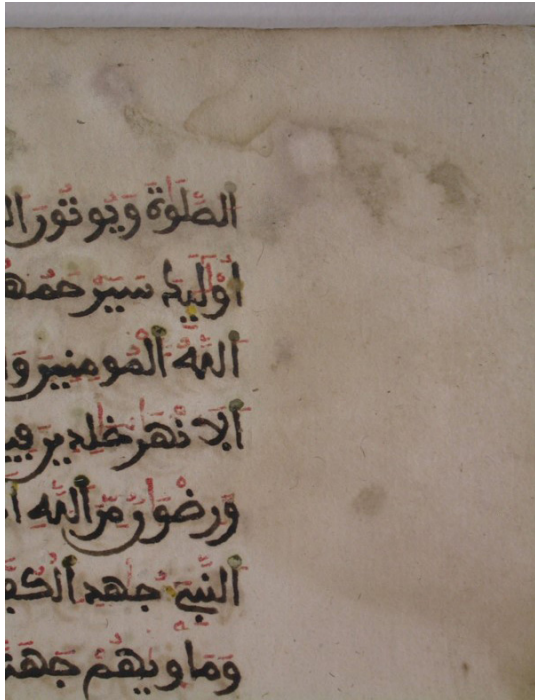 الصَّلَوٰةَ وَيُوتُونَ
أُوْلَٰئِكَ سَيَرْحَمُهُ
اَ۬للَّهُ اُ۬لْمُومِنِينَ وَ
اَ۬لَانْهَٰرُ خَٰلِدِينَ فِي
وَرِضْوَٰنٌ مِّنَ اَ۬للَّهِ
اَ۬لنَّبِيُّ جَٰهِدِ اِ۬لْكُفَّ
وَمَأْوِيٰهُمْ جَهَنَّ